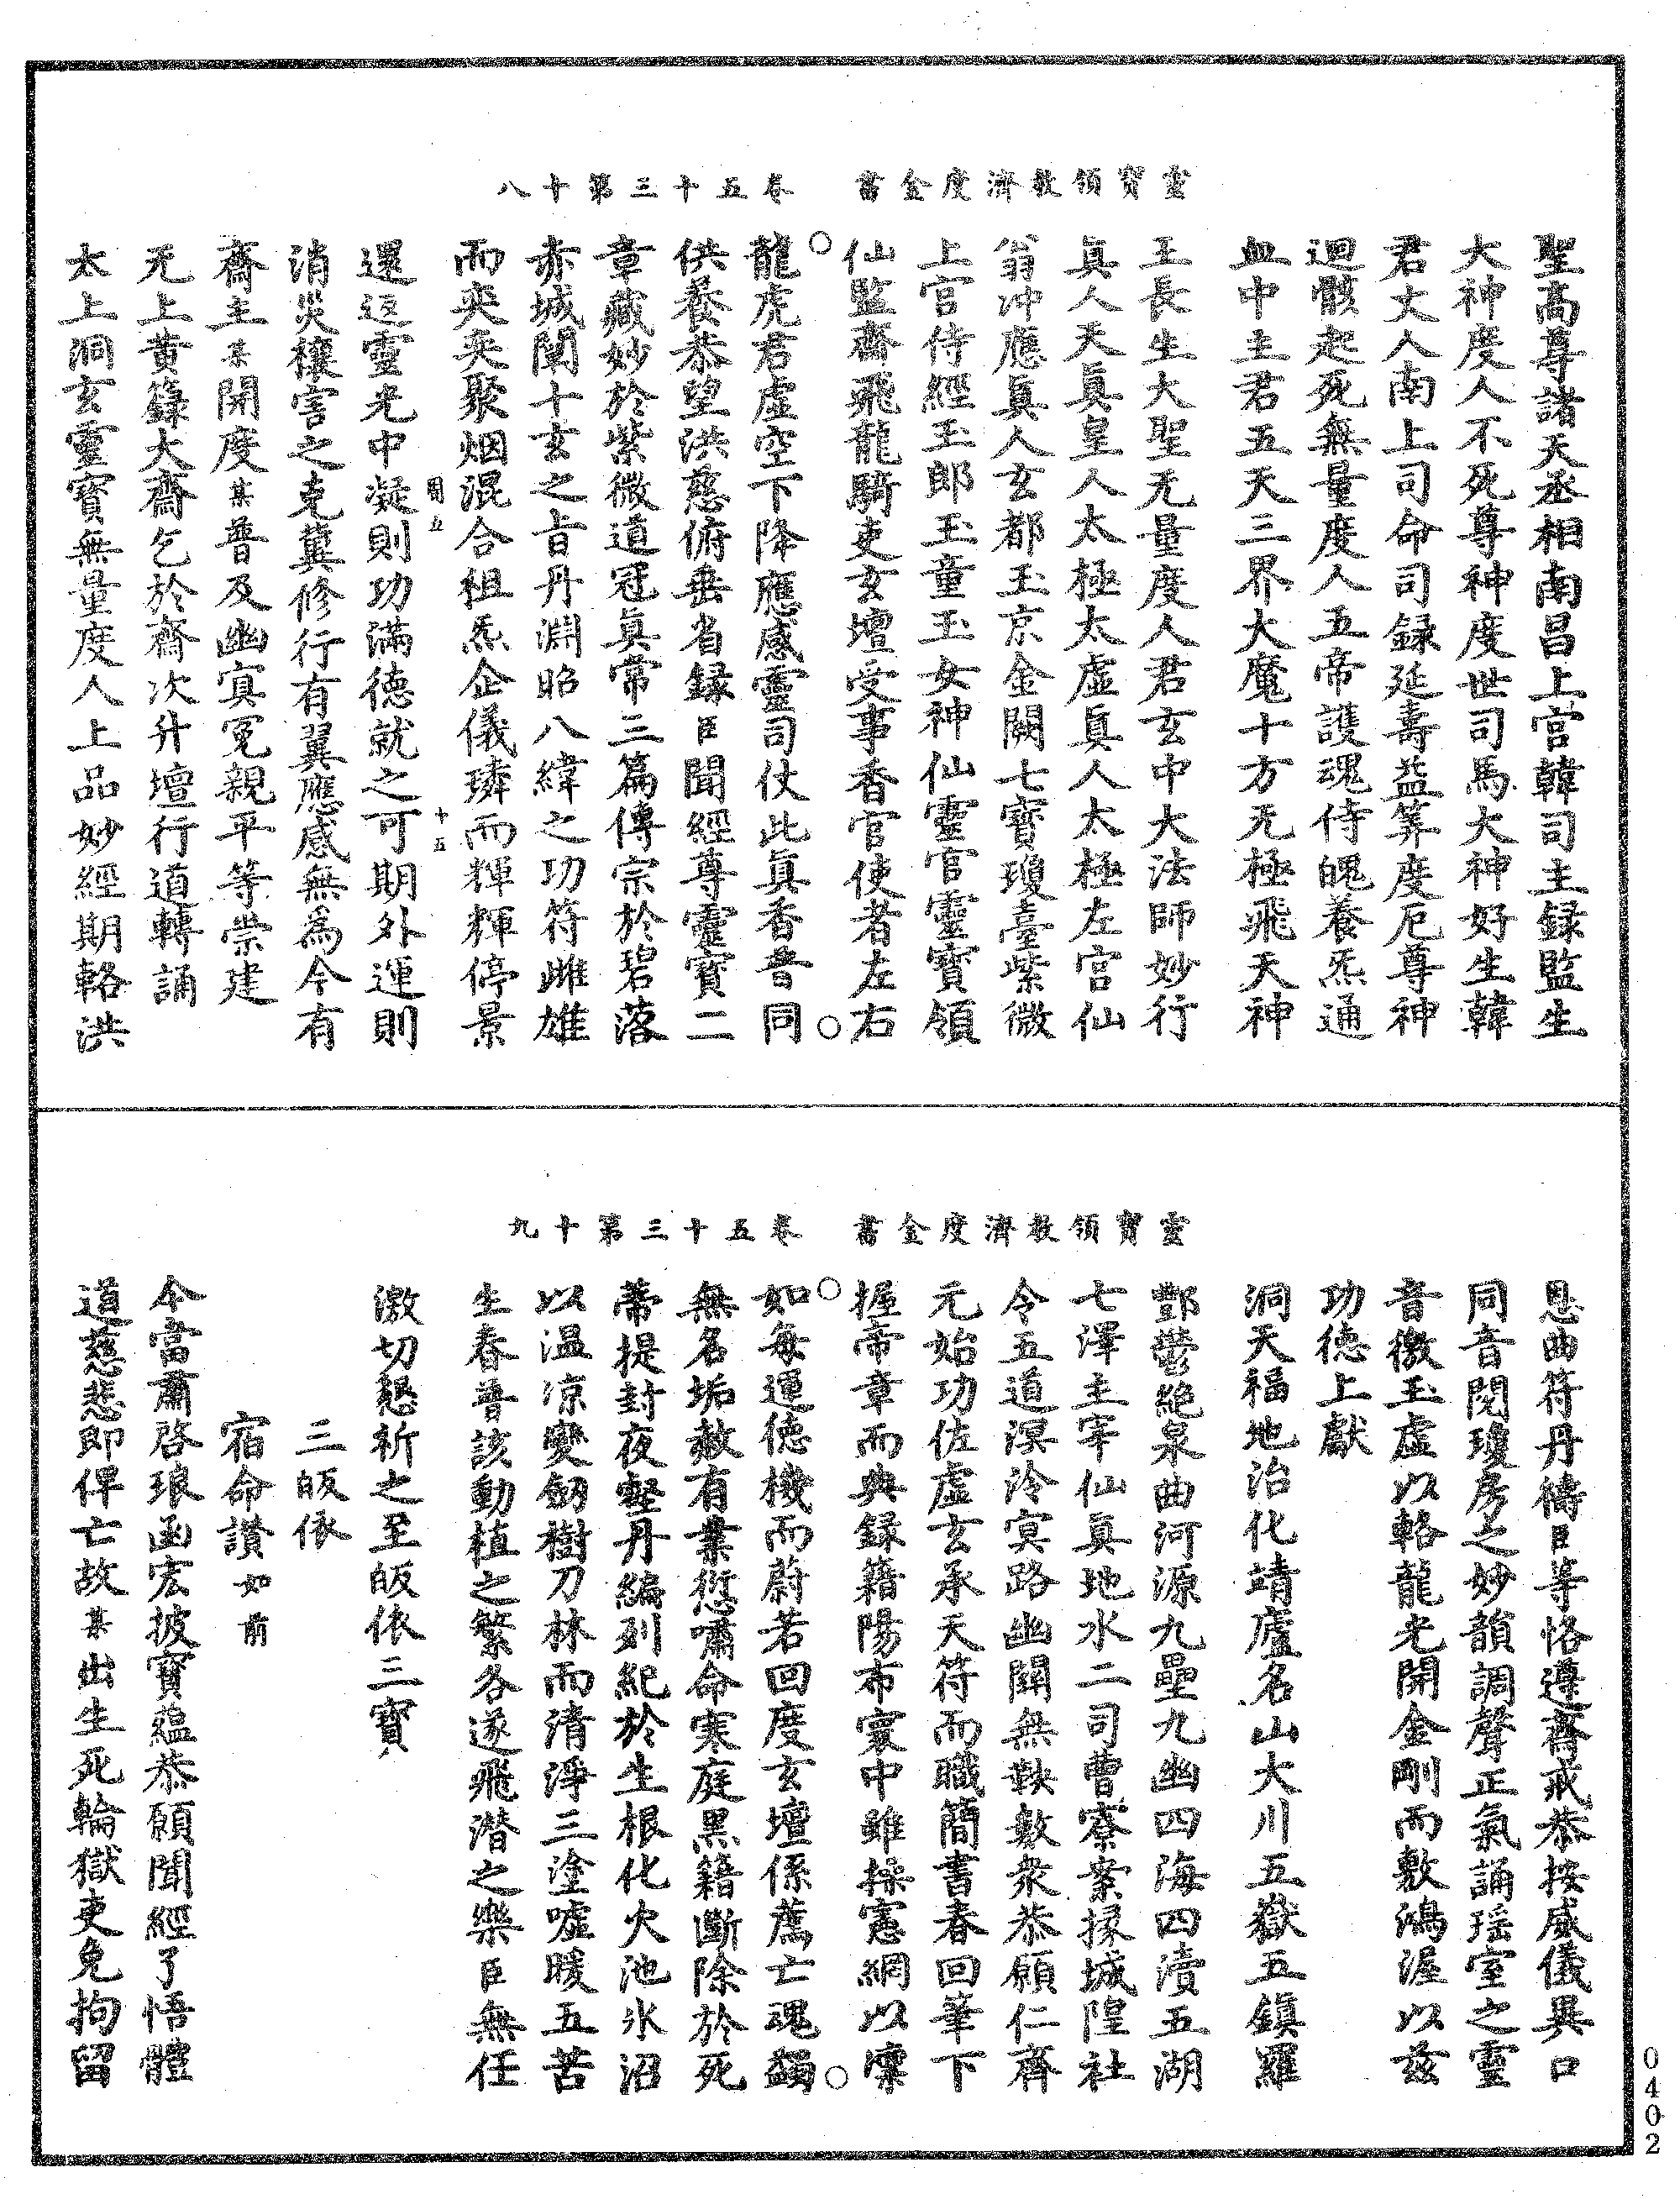 靈寶領教濟度金書　卷五十三第十八
聖高尊諸天丞相南昌上宮韓司主録監生
大神度人不死尊神度世司馬大神好生韓
君丈人南上司命司録延壽益筭度厄尊神
迴骸起死無量度人五帝護魂侍魄養炁通
血中主君五天三界大魔十方无極飛天神
王長生大聖无量度人君玄中大法師妙行
眞人天眞皇人太極太虛眞人太極左宮仙
翁冲應眞人玄都玉京金闕七寶瓊臺紫微
上宮侍經玉郎玉童玉女神仙靈官靈寶領
仙監齋飛龍騎吏玄壇受事香官使者左右
龍虎君虛空下降應感靈司仗此眞香普同
供養恭望洪慈俯垂省録臣聞經尊靈寶二
章藏妙於紫微道冠眞常三篇傳宗於碧落
赤城闡十玄之旨丹淵昭八緯之功符雌雄
而夾夾聚烟混合祖炁企儀璘而輝輝停景
還返靈光中凝則功滿德就之可期外運則
消災禳害之克冀修行有翼應感無爲今有
齋主某開度某普及幽冥冤親平等崇建
无上黄籙大齋乞於齋次升壇行道轉誦
太上洞玄靈寶無量度人上品妙經期輅洪
靈寶領教濟度金書　卷五十三第十九
恩曲符丹禱臣等恪遵齋戒恭按威儀異口
同音閱瓊房之妙韻調聲正氣誦瑶室之靈
音徼玉虛以輅龍光開金剛而敷鴻渥以兹
功德上獻
洞天福地治化靖廬名山大川五嶽五鎮羅
酆鬱絶泉曲河源九壘九幽四海四瀆五湖
七澤主宰仙眞地水二司曹寮案掾城隍社
令五道溟泠冥路幽關無鞅數衆恭願仁齊
元始功佐虛玄承天符而職簡書春回筆下
握帝章而典録籍陽布寰中雖操憲網以懍
如每運德機而蔚若回度玄壇係薦亡魂蠲
無名垢赦有業愆嘯命寒庭黑籍斷除於死
蔕提封夜壑丹編列紀於生根化火池氷沼
以温凉變劒樹刀林而清淨三塗噓暖五苦
生春普該動植之繁各遂飛潛之樂臣無任
激切懇祈之至皈依三寶
三皈依
宿命讚如前
今當肅啓琅函宏披寶蘊恭願聞經了悟體
道慈悲即俾亡故某出生死輪獄吏免拘留
0402